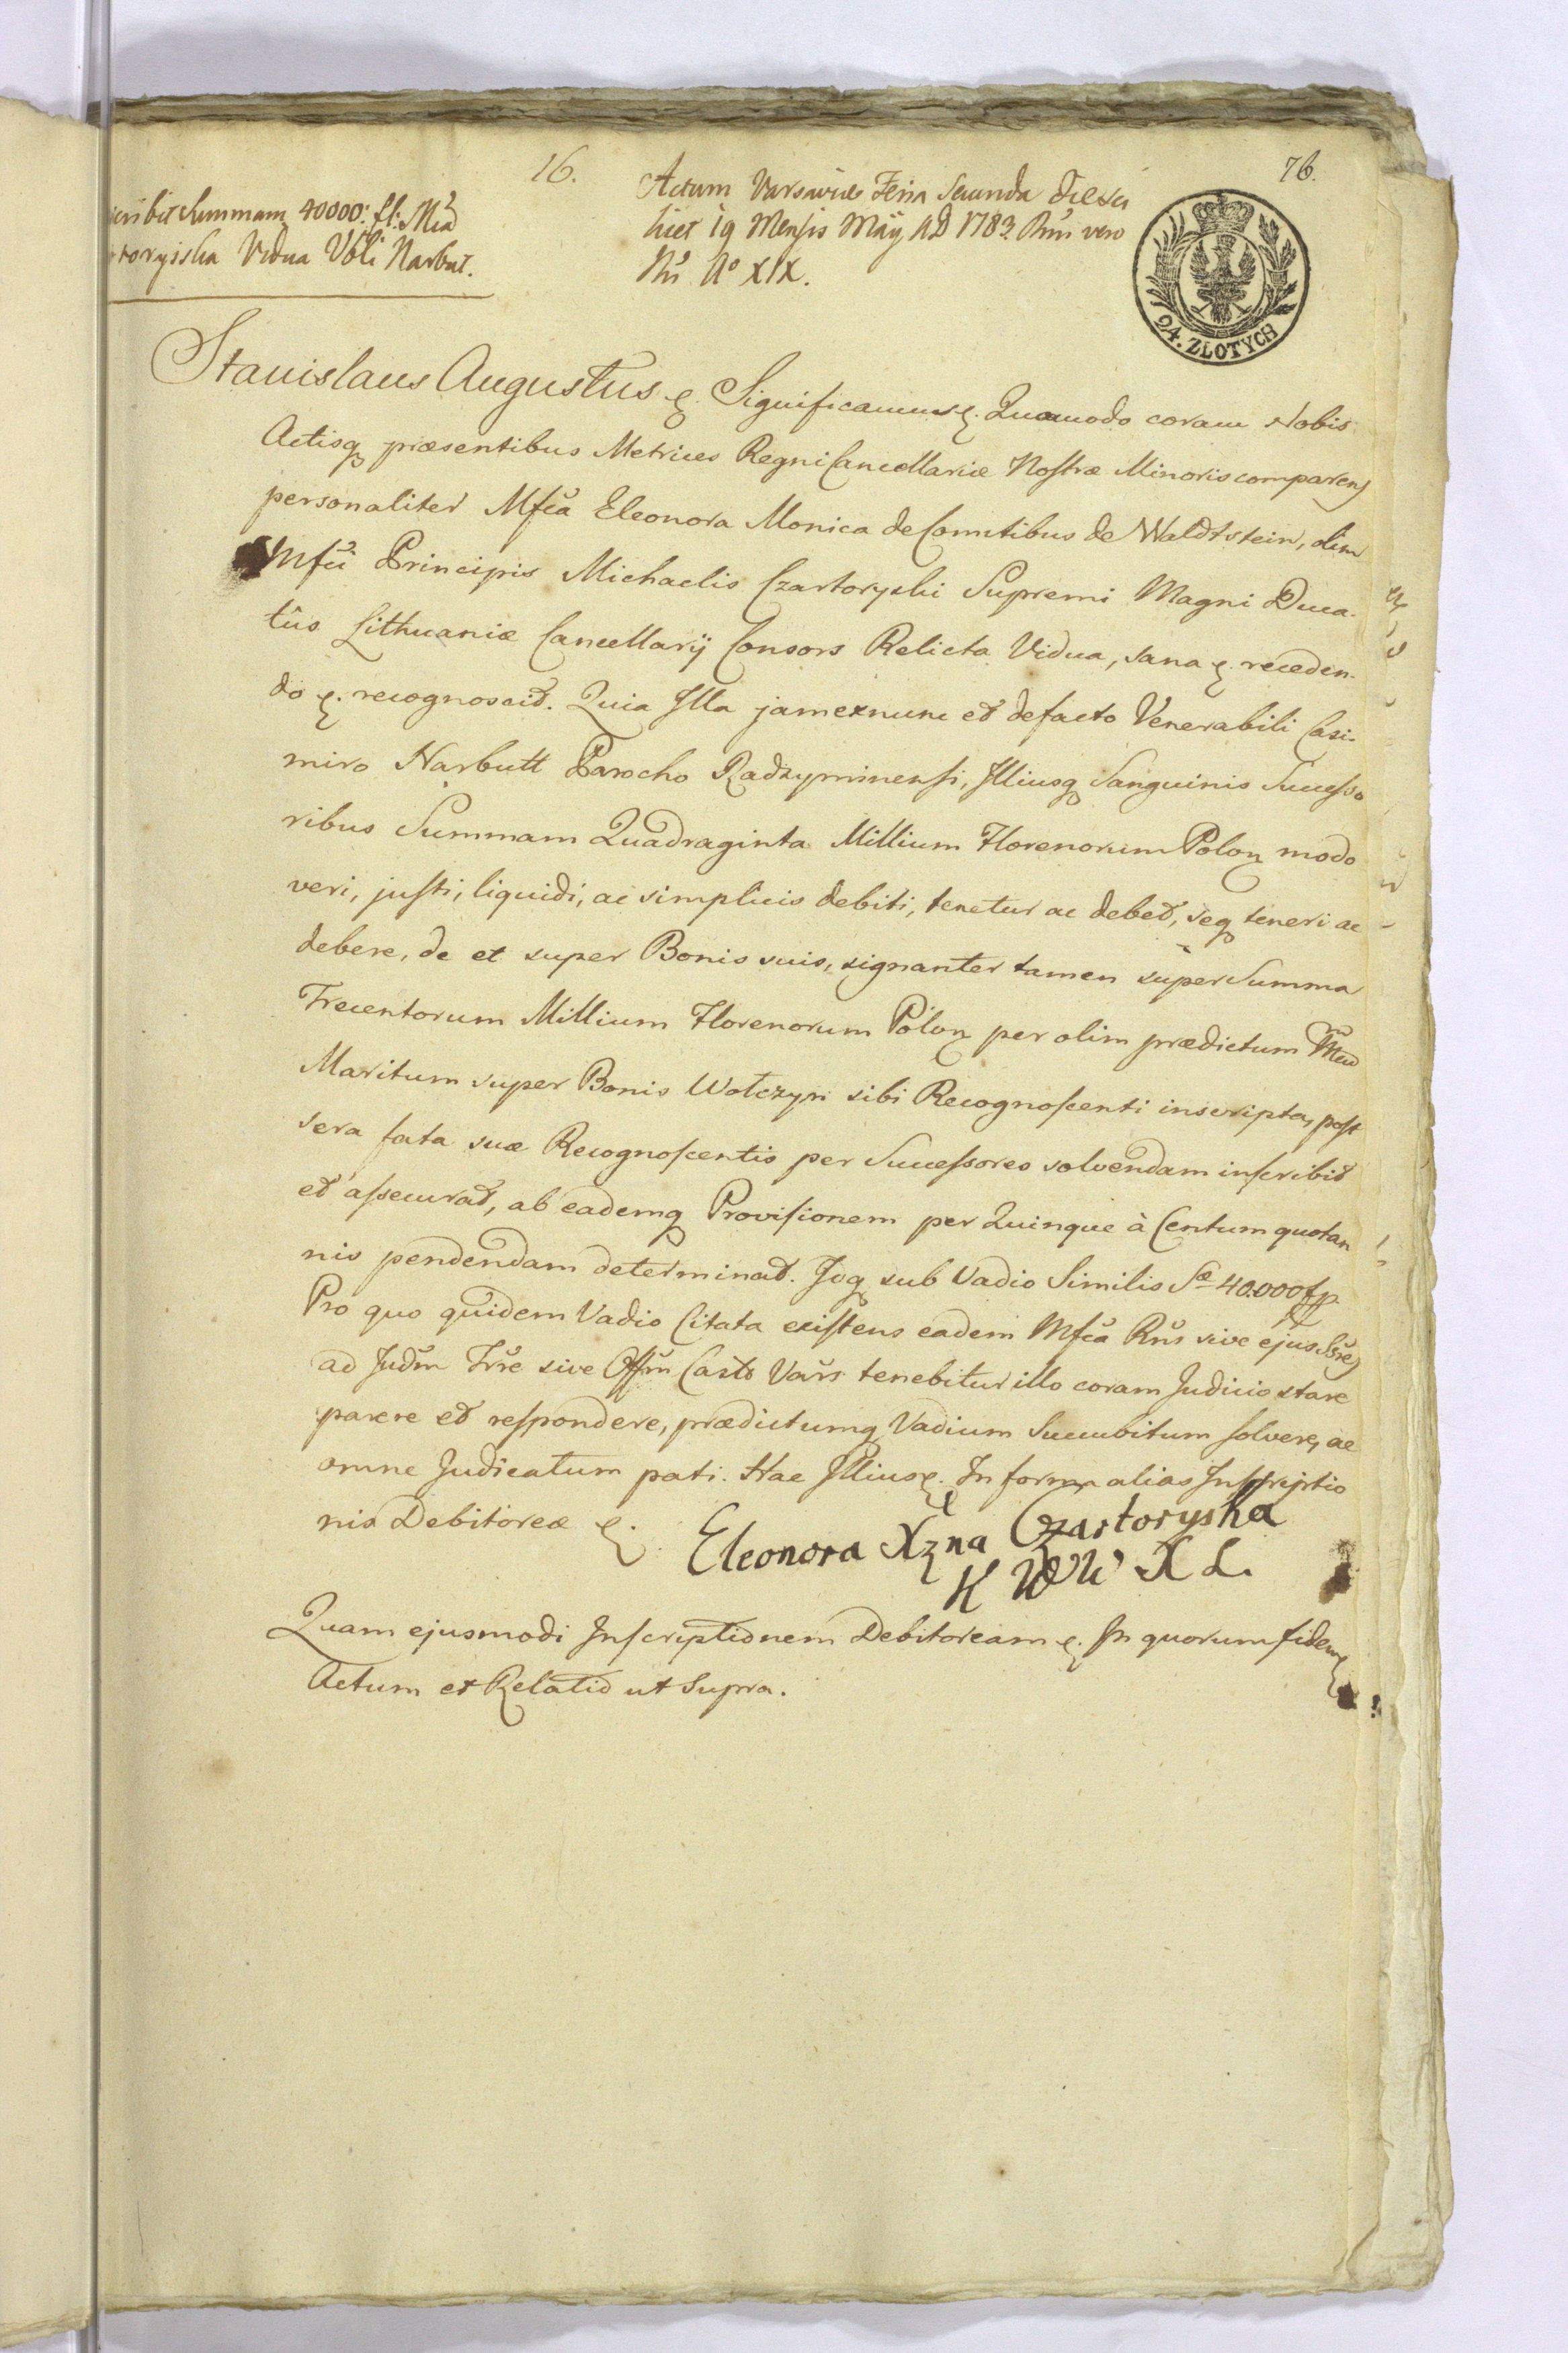 16.
76.
Actum Varsaviæ Feria Secunda die sci
licet 19 Mensis Maÿ AD 1783. Rñi vero
Nri A° XIX.
cribit Summam 40000: fl: Mca
toryiska Vidua Vbli Narbut.
24. ZŁOTYCH
Stanislaus Augustus &. Significamus &. Quomodo coram Nobis
Actisq præsentibus Metrices Regni Cancellariæ Nostræ Minoris comparens
personaliter Mfca Eleonora Monica de Comitibus de Waldtstein, olim
Mfci Principis Michaelis Czartoryski Supremi Magni Duca-
tûs Lithuaniæ Cancellarij Consors Relicta Vidua, sana &. receden-
do &. recognoscit. Quia Illa jam exnunc et defacto Venerabili Casi-
miro Narbutt Parocho Radzyminensi, Illiusq Sanguinis Successo
ribus Summam Quadraginta Millium Florenorum Polon modo
veri, justi, liquidi, ac simplicis debiti, tenetur ac debet, seq teneri ac
debere, de et super Bonis suis, signanter tamen super Summa
Trecentorum Millium Florenorum Polon per olim prædictum Mcum
Maritum super Bonis Wołczyn sibi Recognoscenti inscripta, post
sera fata suæ Recognoscentis per Successores solvendam inscribit
et assecurat, ab eademq Provisionem per Quinque à Centum quotan
nis pendendam determinat. Idq sub Vadio Similis Sæ 40.000 fp.
Pro quo quidem Vadio Citata existens eadem Mfca Rns sive ejus Ssres
ad Judm Trre sive Offm Castr Vars tenebitur illo coram Judicio stare
parere et respondere, prædictumq Vadium Succubitum solvere, ac
omne Judicatum pati. Hac Illius &. In forma alias Inscriptio
nis Debitoreæ &.
Eleonora Xzna Czartoryska
K W W X L.
Quam ejusmodi Inscriptionem Debitoream &. In quorum fidem &
Actum et Relatio ut Supra.